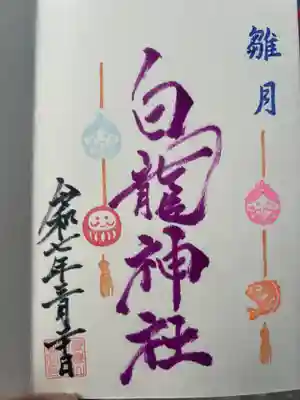 雛月
白龍神社
令和七年三月二十日